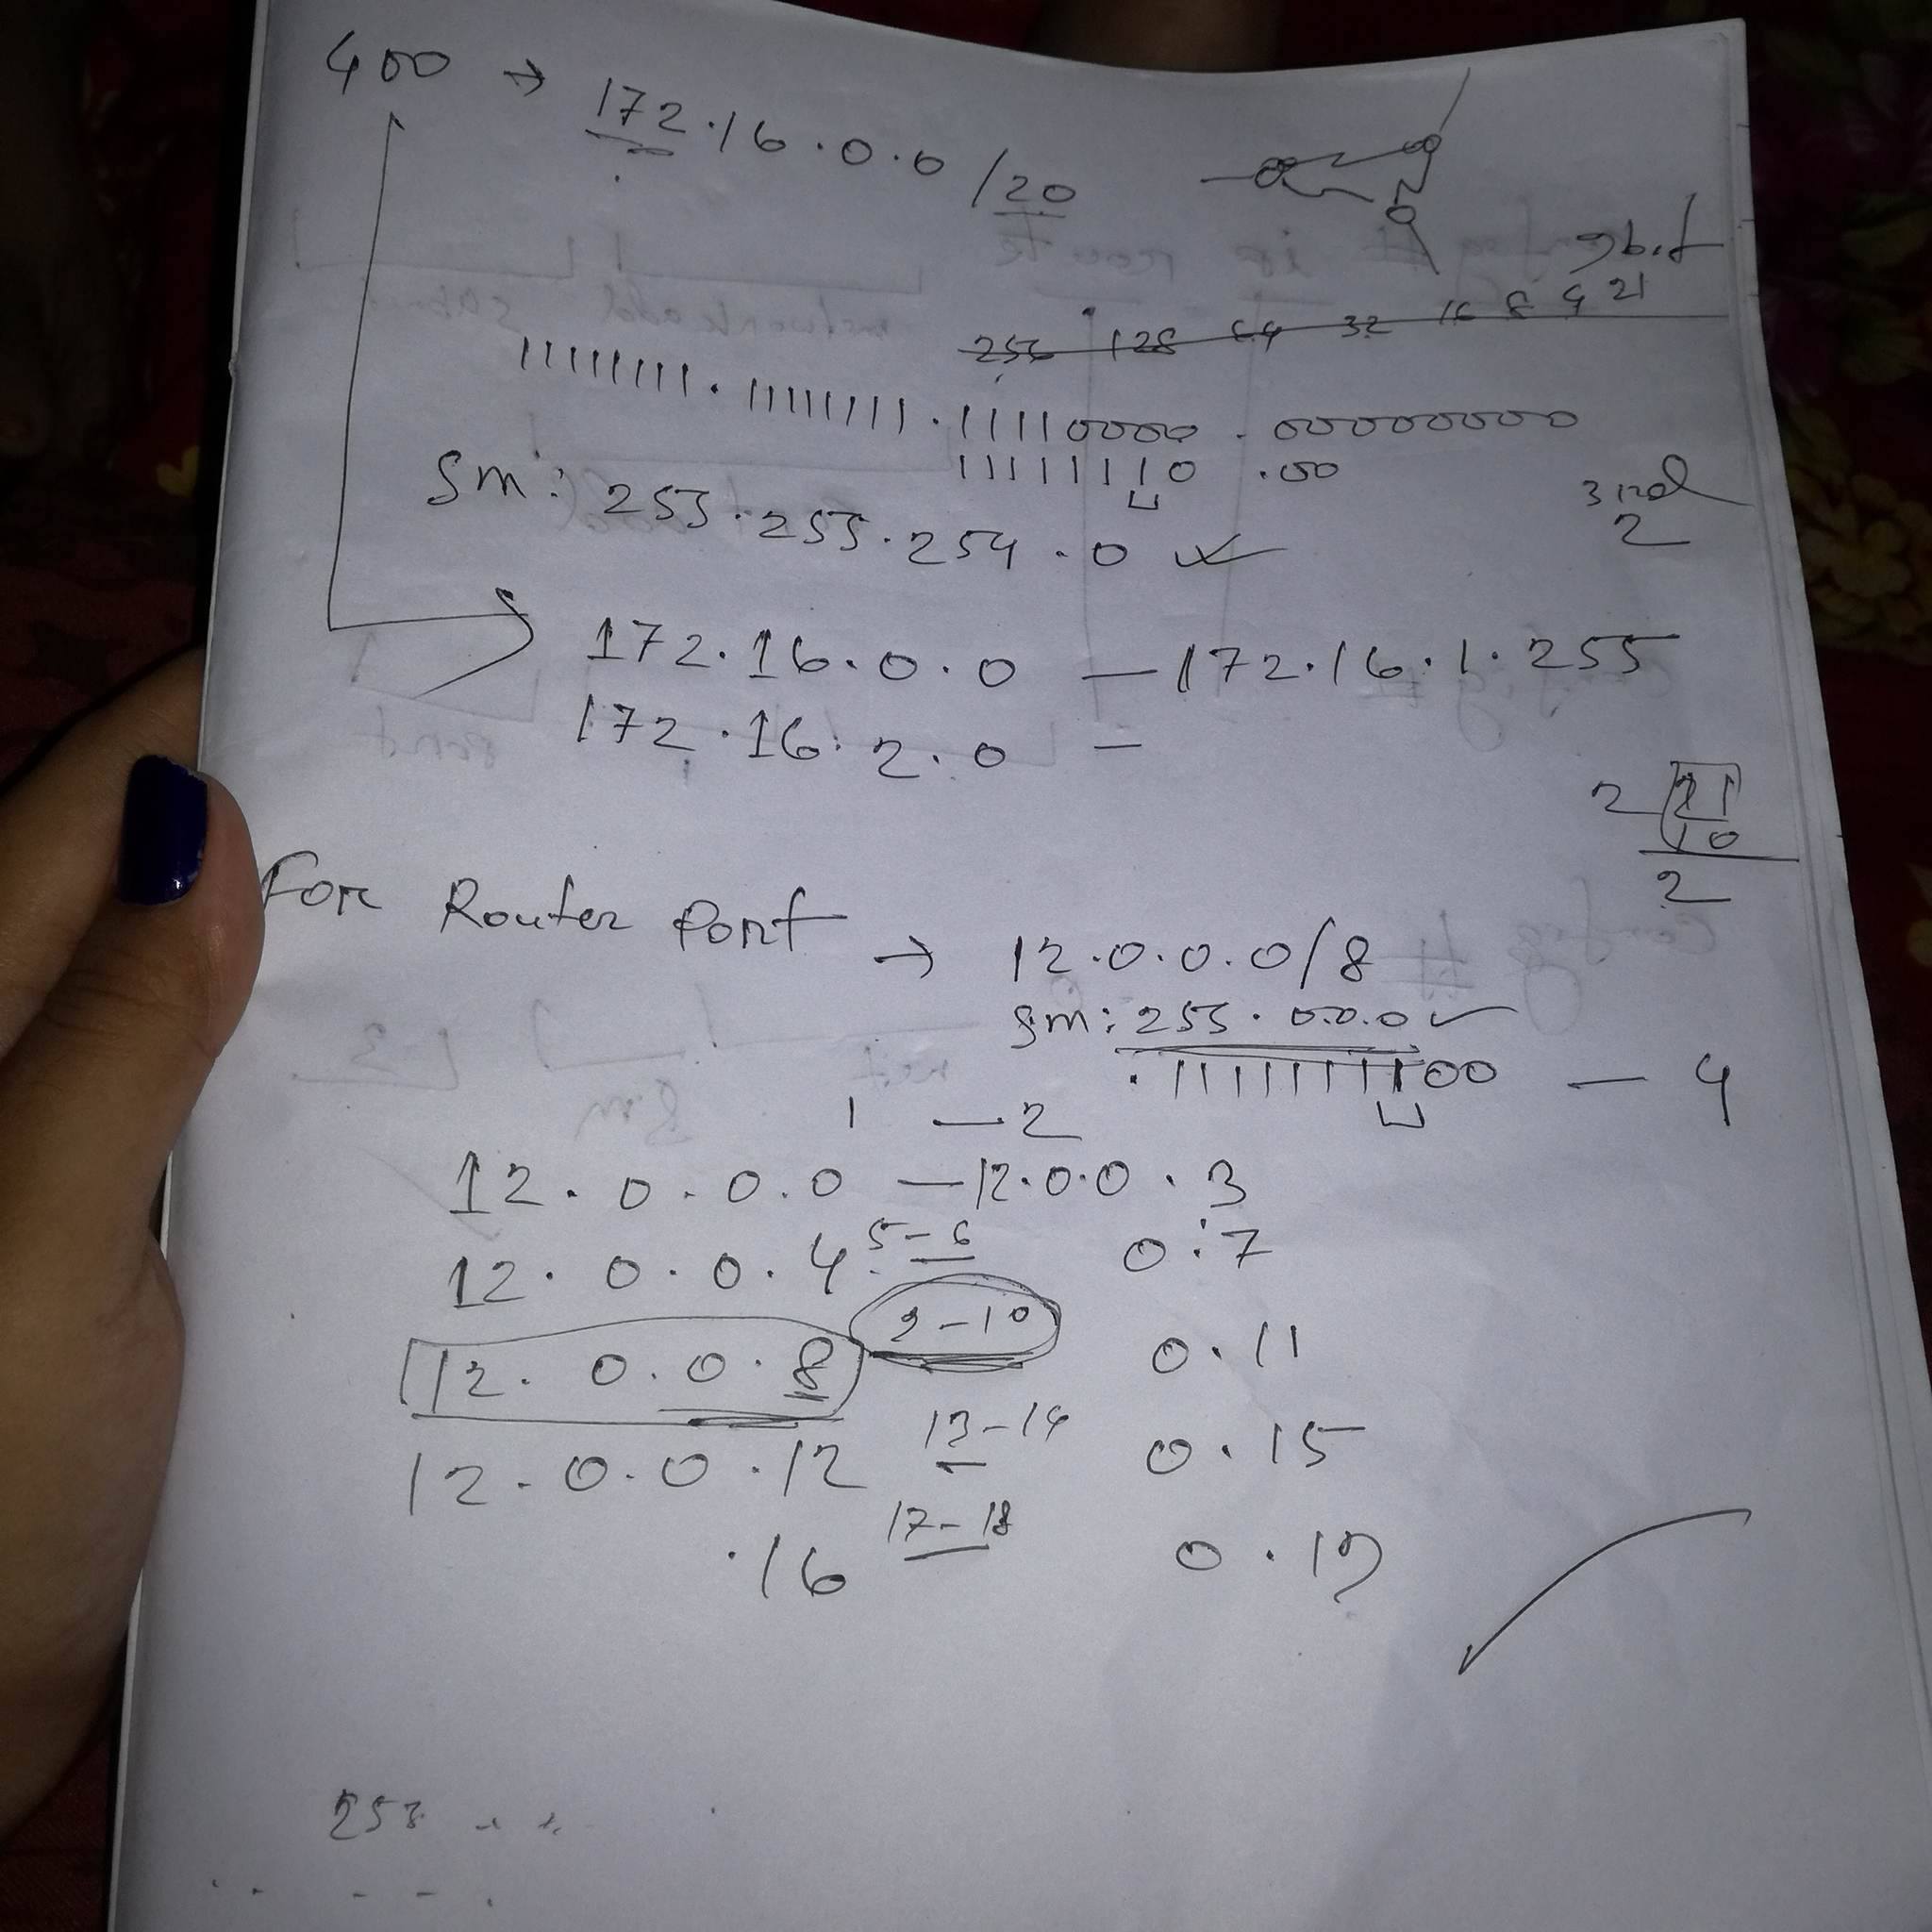 400 → 172.16.0.0/20
9bit
256 128 64 32 16 8 4 21
11111111.11111111.11110000.00000000
11111110.00
Sm: 255.255.254.0 ✓
2
172.16.0.0 — 172.16.1.255
172.16.2.0 —
2 21
10
2
For Router Port → 12.0.0.0/8
Sm: 255.0.0.0 ✓
.11111111100 — 4
1 — 2
12.0.0.0 — 12.0.0.3
12.0.0.4 5-6 0.7
12.0.0.8 9-10 0.11
12.0.0.12 13-14 0.15
.16 17-18 0.19